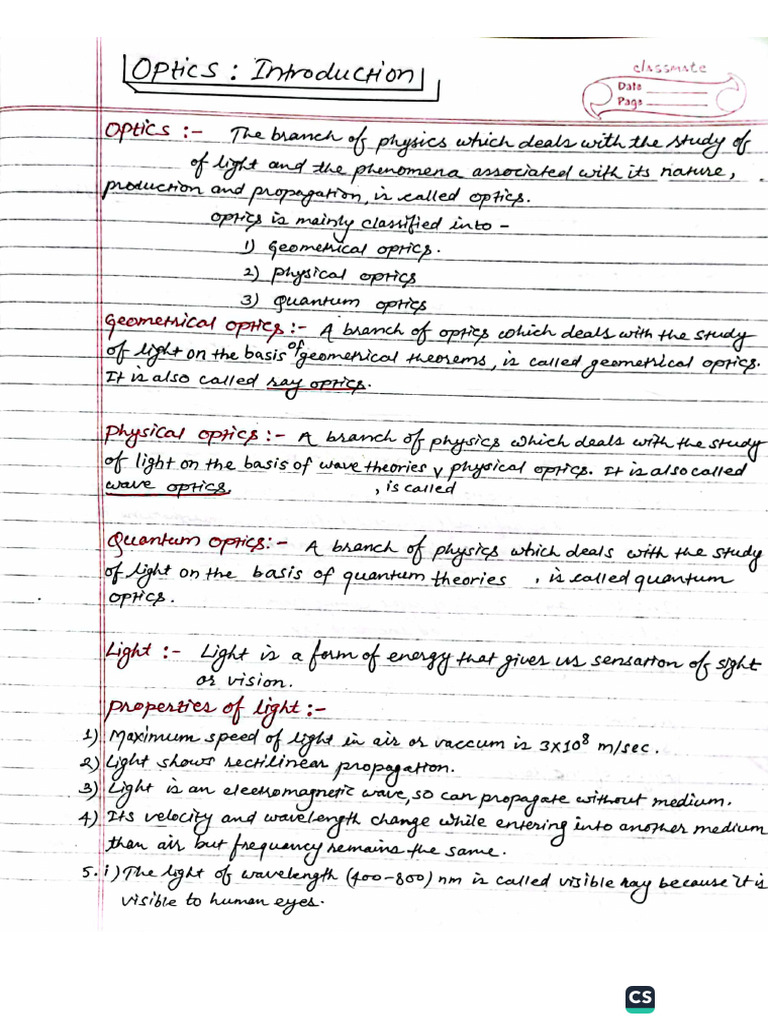 Optics : Introduction
classmate
Date
Page
Optics :- The branch of physics which deals with the study of
of light and the phenomena associated with its nature,
production and propagation, is called optics.
Optics is mainly classified into -
1) Geometrical optics.
2) Physical optics
3) Quantum optics
Geometrical optics :- A branch of optics which deals with the study
of light on the basis of geometrical theorems, is called geometrical optics.
It is also called ray optics.
Physical optics :- A branch of physics which deals with the study
of light on the basis of wave theories v physical optics. It is also called
wave optics.
, is called
Quantum optics:- A branch of physics which deals with the study
of light on the basis of quantum theories , is called quantum
optics.
Light :- Light is a form of energy that gives us sensation of sight
or vision.
Properties of light :-
1) Maximum speed of light in air or vaccum is 3x10⁸ m/sec.
2) Light shows rectilinear propagation.
3) Light is an electromagnetic wave, so can propagate without medium.
4) Its velocity and wavelength change while entering into another medium
than air but frequency remains the same.
5. i) The light of wavelength (400-800) nm is called visible ray because it is
visible to human eyes.
CS